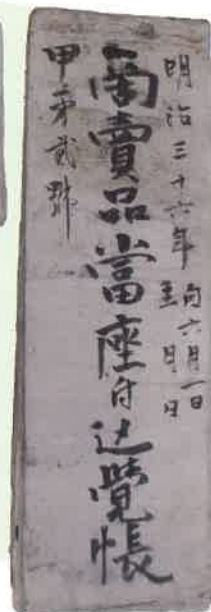 明治三十六年
自六月一日
至 月 日
商賣品當座日込覺帳
甲第貳號